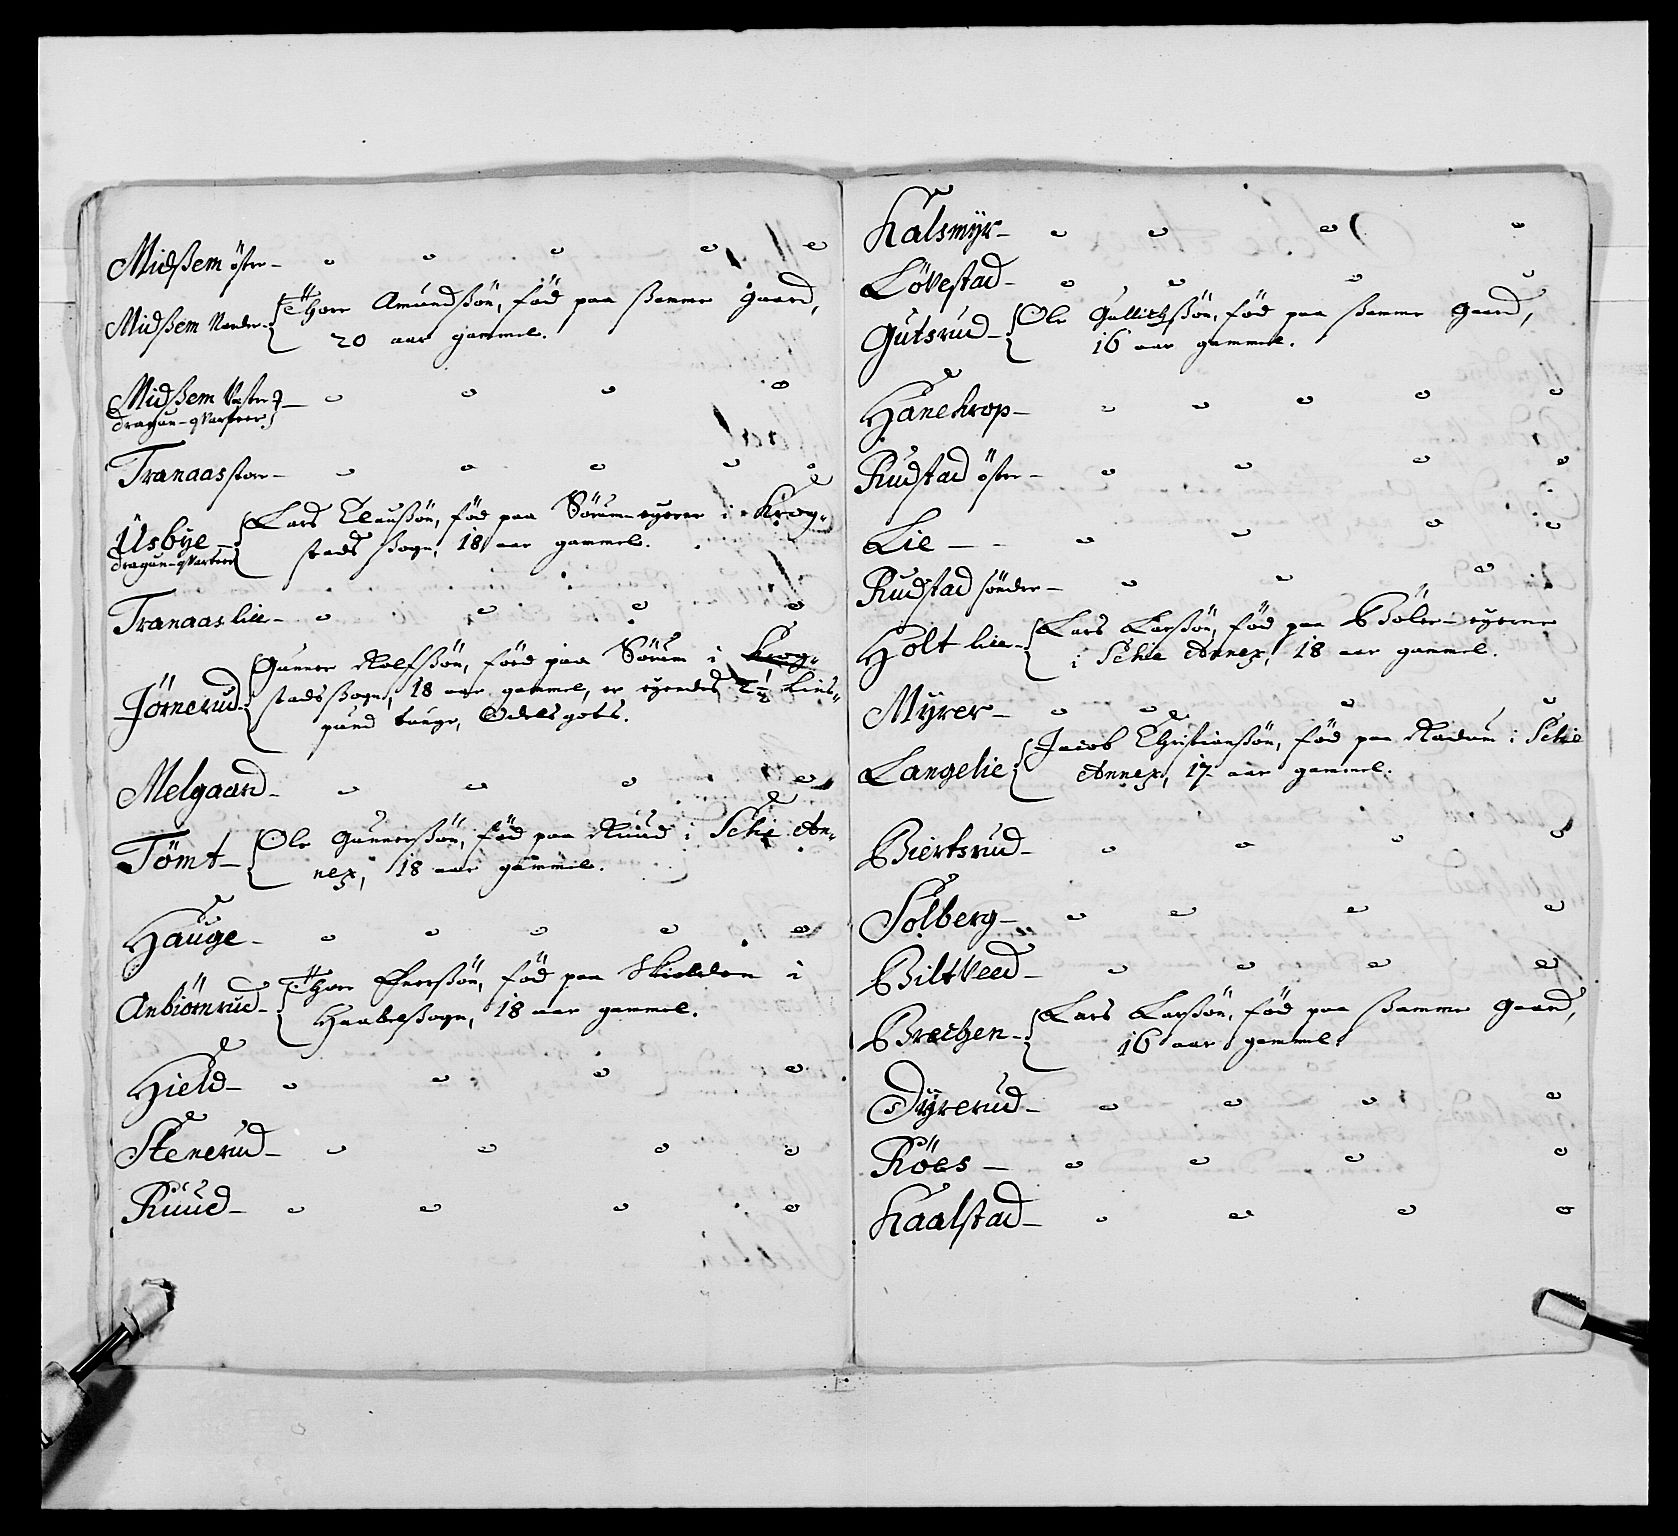 Midßem öster –
Midßem Nordre – { Thore Amundßön, föd paa ßamme gaard,
20 aar gammel.
Midßem Vester }
dragun-qvarteer }
Tranaas store –
Üsbye – { Lars Clausßön, föd paa Sörum-eyerne i Krog-
dragun-qvarteer stads ßogn, 18 aar gammel.
Tranaas lille –
Jörnerud – { Gunner Rolfßön, föed paa Sörum i Krog-
stadsßogn, 18 aar gammel, er eyendes 2½ Lis-
pund tunge, Odelsgods.
Melgaard –
Tömt – { Ole Gunnerßön, föd paa Ruud i Schie An-
nex, 18 aar gammel.
Hauge –
Anbiörnrud – { Thore Enerßön, föd paa i
Haabelßogn, 18 aar gammel.
Hield –
Stenerud –
Ruud –
Kalsmyr –
Lövestad –
Gutsrud – { Ole Gullichßön, föd paa ßamme gaard,
16 aar gammel.
Hanekrop –
Rudstad öster –
Lie –
Rudstad sönder –
Holt lille – { Lars Larßön, föd paa Böler-eyerne
i Schie Annex, 18 aar gammel.
Myrer –
Langelie { Jacob Christianßön, föd paa Rodum i Schie
Annex, 17 aar gammel.
Biertsrud –
Solberg –
Biltveed –
Brechen – { Lars Larßön, föd paa ßamme Gaard,
16 aar gammel.
Dÿrerud –
Röes –
Kaalstad –